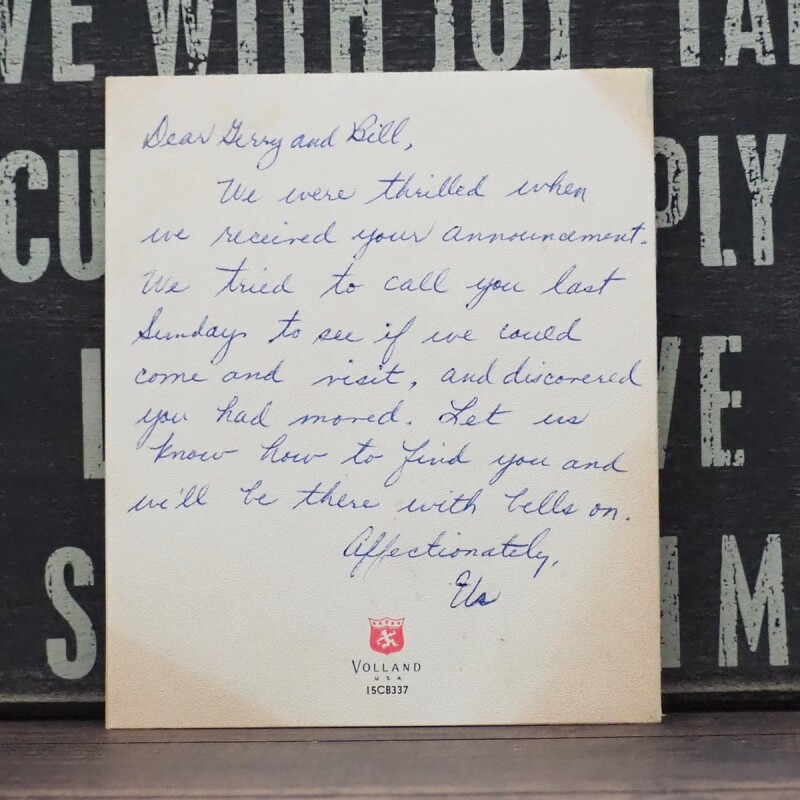 VE WITH JOY TA
CU
PLY
L
VE
S
M
Dear Gerry and Bill,
We were thrilled when
we received your announcement.
We tried to call you last
Sunday to see if we could
come and visit, and discovered
you had moved. Let us
know how to find you and
we'll be there with bells on.
Affectionately,
Us
VOLLAND
USA
15CB337